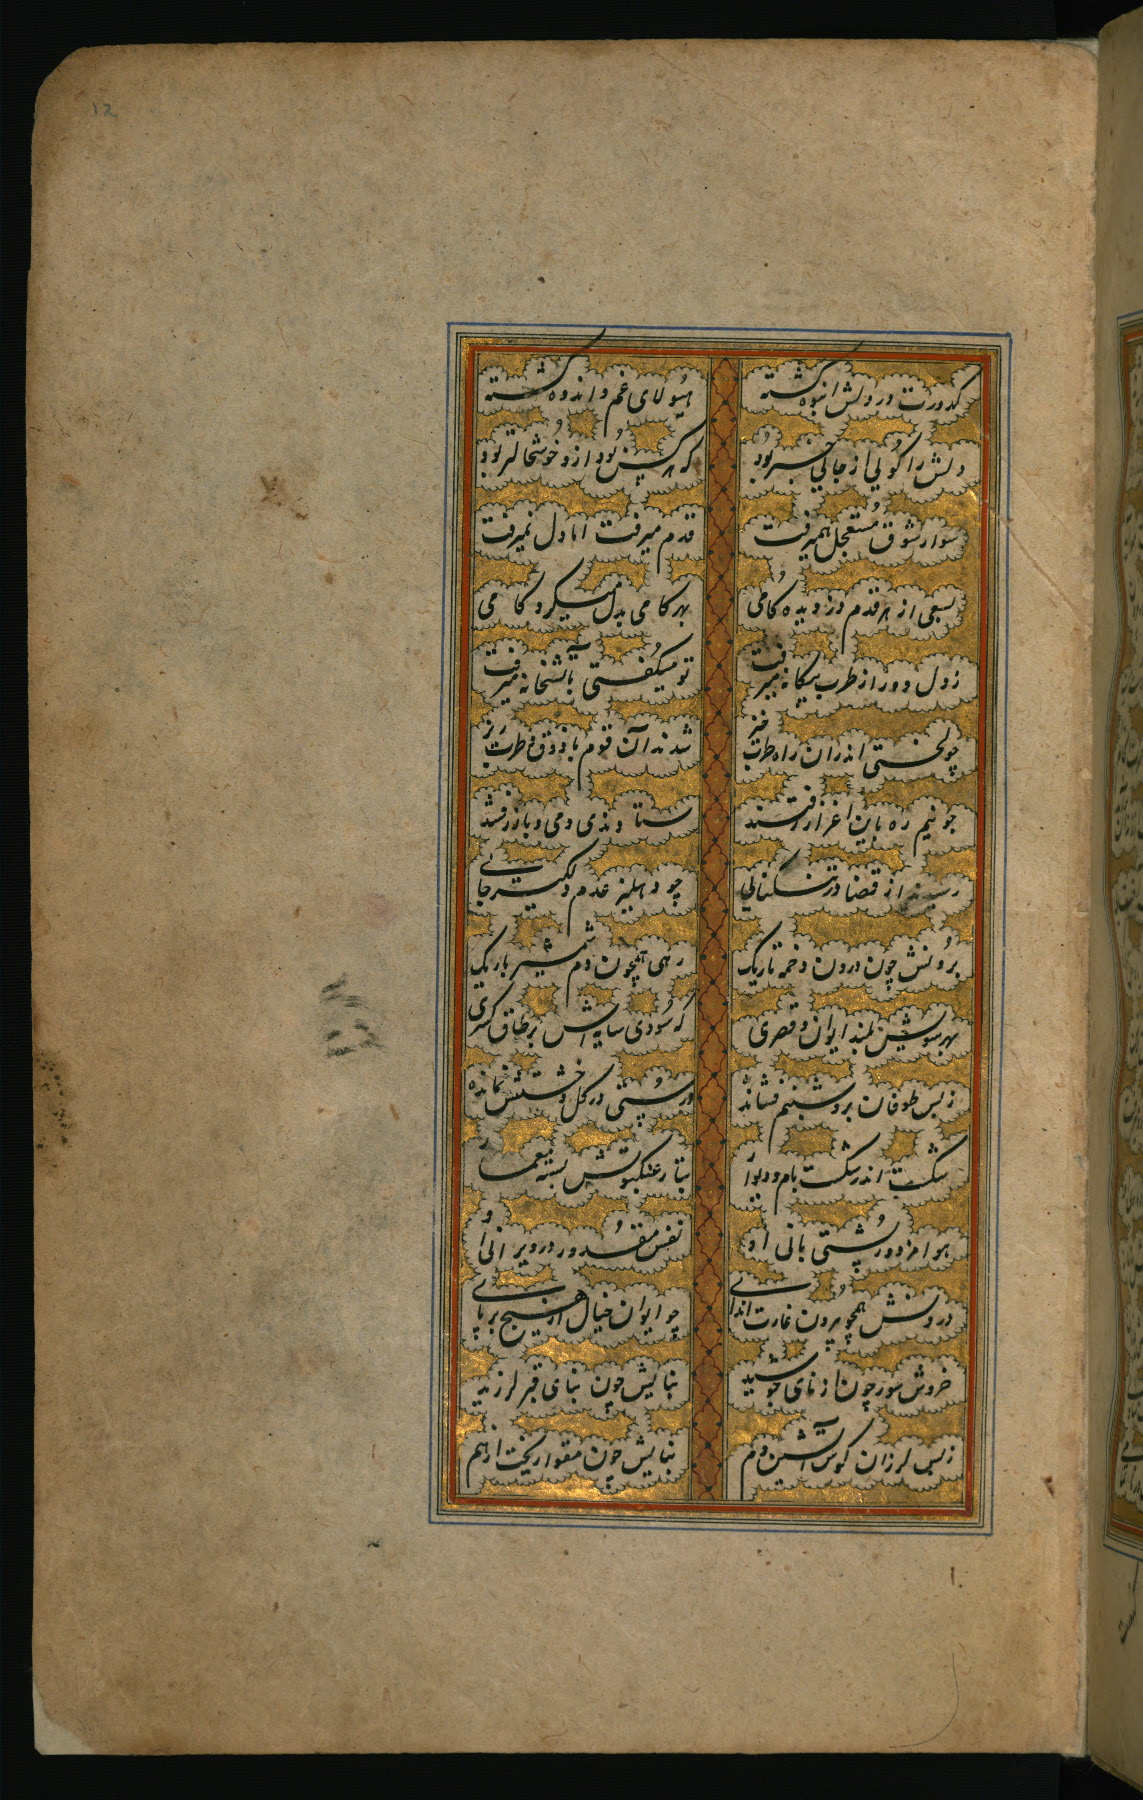 12
کدورت در دلش انبوه گشته
هیولای غم و اندوه گشته
دلش را گوئی از جائی خبر بود
که هر کس بود ازو خوشحالتر بود
سوار شوق مستعجل همیرفت
قدم میرفت اما دل نمیرفت
بسعی از هر قدم دزدیده گامی
بهر کامی بدل میکرد گامی
ز دل دور از طرب بیگانه میرفت
تو میگفتی بآتشخانه میرفت
چو لختی اندران راه طرب خیز
شدند آن قوم با ذوق و طرب ریز
چو نیم ره باین اعزاز رفتند
ستادندی دمی و باز رفتند
رسیدند از قضا در تنگنائی
چو دهلیز عدم دلگیر جائی
برونش چون درون دخمه تاریک
رهی همچون دم شمشیر باریک
بهر سویش بلند ایوان و قصری
که سودی سایه اش بر طاق کسری
ز بس طوفان برو شبنم فشانده
درستی در گل و خشتش نمانده
شکست اندر شکست بام و دیوار
بتار عنکبوتش بسته معمار
هوا مزدور پشتی بانی او
نفس مقدور در ویرانی او
درونش همچو بیرون غارت اندای
چو ایوان خیال از هیچ بر پای
خروش سور چون از نای جوشید
بنایش چون بنای قبر لرزید
ز بس لرزان کوس آتشین دم
بنایش چون مقوا ریخت از هم